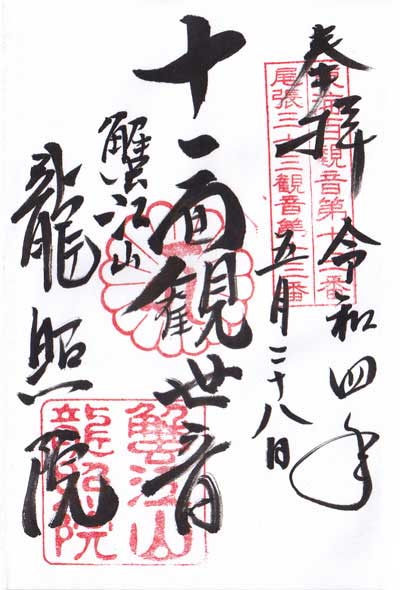 奉拝
東海百観音第十三番
尾張三十三観音第十三番
令和四年
五月二十八日
十一面観世音
蟹江山
龍照院
蟹江山
龍照院